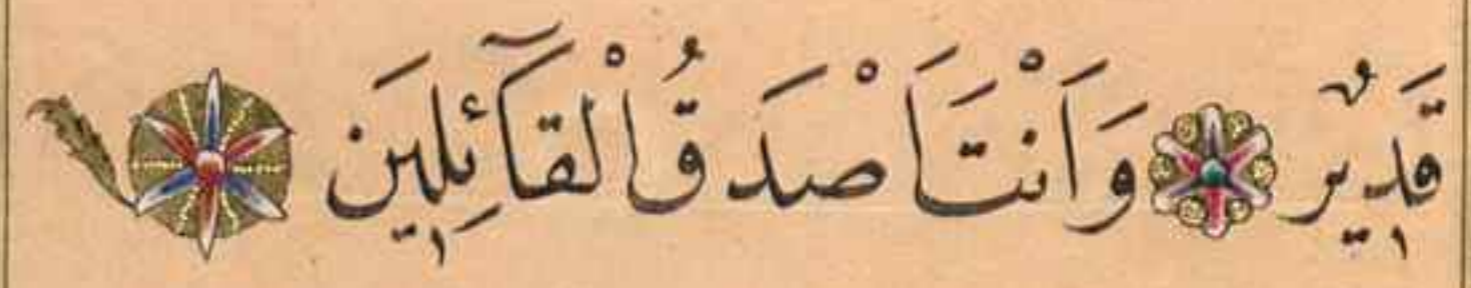 قَدٖيرٌ وَاَنْتَ اَصْدَقُ الْقَٓائِلٖينَ